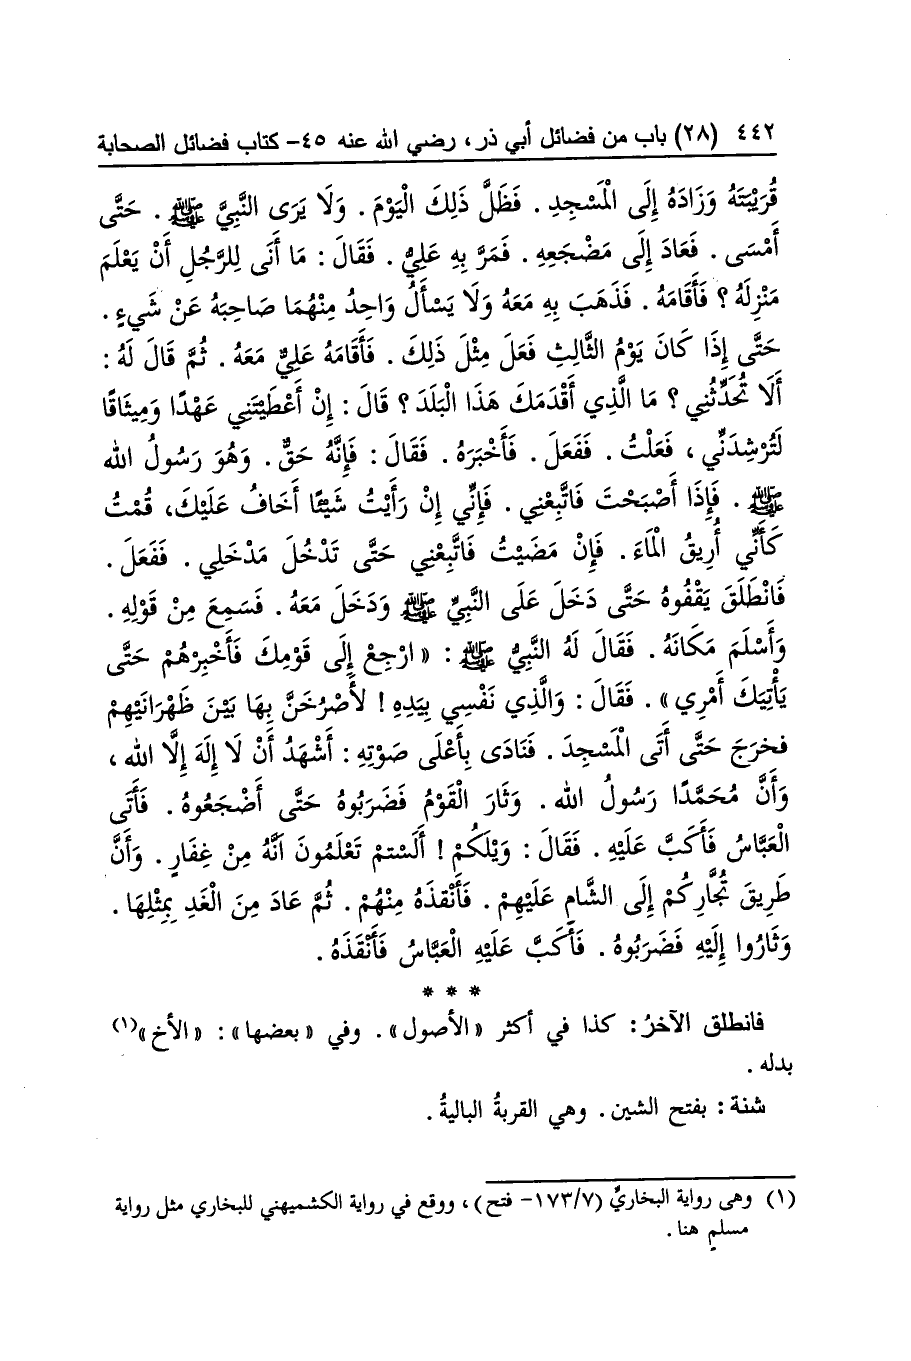 ٤٤٢ (٢٨) باب من فضائل أبي ذر، رضي الله عنه ٤٥- كتاب فضائل الصحابة
قُرَيْبَتَهُ وَزَادَهُ إِلَى الْمَسْجِدِ . فَظَلَّ ذَلِكَ الْيَوْمَ . وَلَا يَرَى النَّبِيَّ ﷺ . حَتَّى
أَمْسَى . فَعَادَ إِلَى مَضْجَعِهِ . فَمَرَّ بِهِ عَلِيٌّ . فَقَالَ : مَا أَنَى لِلرَّجُلِ أَنْ يَعْلَمَ
مَنْزِلَهُ ؟ فَأَقَامَهُ . فَذَهَبَ بِهِ مَعَهُ وَلَا يَسْأَلُ وَاحِدٌ مِنْهُمَا صَاحِبَهُ عَنْ شَيءٍ .
حَتَّى إِذَا كَانَ يَوْمُ الثَّالِثِ فَعَلَ مِثْلَ ذَلِكَ . فَأَقَامَهُ عَلِيٌّ مَعَهُ . ثُمَّ قَالَ لَهُ :
أَلَا تُحَدِّثُنِي ؟ مَا الَّذِي أَقْدَمَكَ هَذَا الْبَلَدَ ؟ قَالَ : إِنْ أَعْطَيْتَنِي عَهْدًا وَمِيثَاقًا
لَتُرْشِدَنِّي ، فَعَلْتُ . فَفَعَلَ . فَأَخْبَرَهُ . فَقَالَ : فَإِنَّهُ حَقٌّ . وَهُوَ رَسُولُ الله
ﷺ . فَإِذَا أَصْبَحْتَ فَاتَّبِعْنِي . فَإِنِّي إِنْ رَأَيْتُ شَيْئًا أَخَافُ عَلَيْكَ، قُمْتُ
كَأَنِّي أُرِيقُ الْمَاءَ . فَإِنْ مَضَيْتُ فَاتَّبِعْنِي حَتَّى تَدْخُلَ مَدْخَلِي . فَفَعَلَ .
فَانْطَلَقَ يَقْفُوهُ حَتَّى دَخَلَ عَلَى النَّبِيِّ ﷺ وَدَخَلَ مَعَهُ . فَسَمِعَ مِنْ قَوْلِهِ .
وَأَسْلَمَ مَكَانَهُ . فَقَالَ لَهُ النَّبِيُّ ﷺ : « ارْجِعْ إِلَى قَوْمِكَ فَأَخْبِرْهُمْ حَتَّى
يَأْتِيَكَ أَمْرِي» . فَقَالَ : وَالَّذِي نَفْسِي بِيَدِهِ ! لأَصْرُخَنَّ بِهَا بَيْنَ ظَهْرَانَيْهِمْ
فخرَجَ حَتَّى أَتَى الْمَسْجِدَ . فَنَادَى بِأَعْلَى صَوْتِهِ : أَشْهَدُ أَنْ لَا إِلَهَ إِلَّا الله ،
وَأَنَّ مُحَمَّدًا رَسُولُ الله . وَثَارَ الْقَوْمُ فَضَرَبُوهُ حَتَّى أَضْجَعُوهُ . فَأَتَى
الْعَبَّاسُ فَأَكَبَّ عَلَيْهِ . فَقَالَ : وَيْلَكُمْ ! أَلَسْتمْ تَعْلَمُونَ أَنَّهُ مِنْ غِفَارٍ . وَأَنَّ
طَرِيقَ تُجَّارِكُمْ إِلَى الشَّامِ عَلَيْهِمْ . فَأَنْقذَهُ مِنْهُمْ . ثُمَّ عَادَ مِنَ الْغَدِ بِمِثْلِهَا .
وَثَارُوا إِلَيْهِ فَضَرَبُوهُ . فَأَكَبَّ عَلَيْهِ الْعَبَّاسُ فَأَنْقَذَهُ .
* * *
فانطلق الآخرُ: كذا في أكثر «الأصول» . وفي «بعضها»: «الأخ»(١)
بدله .
شنة: بفتح الشين . وهي القربةُ الباليةُ .
(١) وهى رواية البخاريِّ (١٧٣/٧- فتح)، ووقع في رواية الكشميهني للبخاري مثل رواية
مسلمٍ هنا .